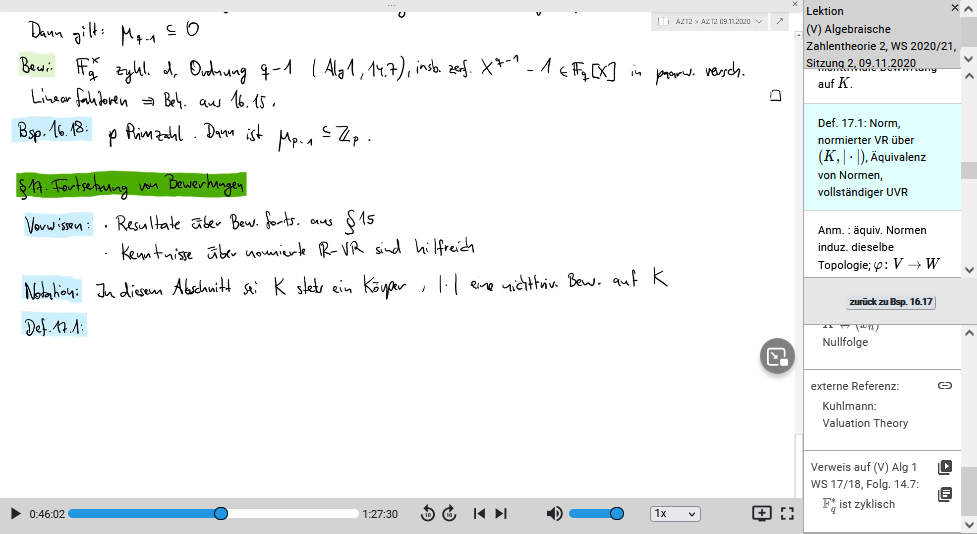 AZT2 > AZT2 09.11.2020
Dann gilt: μ_{q-1} ⊆ O
Bew.: 𝔽_q^× zykl. d. Ordnung q-1 (Alg 1, 14.7), insb. zerf. X^{q-1} - 1 ∈ 𝔽_q[X] in paarw. versch.
Linearfaktoren ⇒ Beh. aus 16.15. □
Bsp. 16.18: p Primzahl. Dann ist μ_{p-1} ⊆ ℤ_p.
§17. Fortsetzung von Bewertungen
Vorwissen: · Resultate über Bew.forts. aus §15
· Kenntnisse über normierte ℝ-VR sind hilfreich
Notation: In diesem Abschnitt sei K stets ein Körper, |·| eine nichttriv. Bew. auf K
Def. 17.1:
0:46:02
1:27:30
10
10
1x
Lektion
(V) Algebraische
Zahlentheorie 2, WS 2020/21,
Sitzung 2, 09.11.2020
auf K.
Def. 17.1: Norm,
normierter VR über
(K, | · |), Äquivalenz
von Normen,
vollständiger UVR
Anm. : äquiv. Normen
induz. dieselbe
Topologie; φ: V → W
zurück zu Bsp. 16.17
Nullfolge
externe Referenz:
Kuhlmann:
Valuation Theory
Verweis auf (V) Alg 1
WS 17/18, Folg. 14.7:
𝔽_q^* ist zyklisch